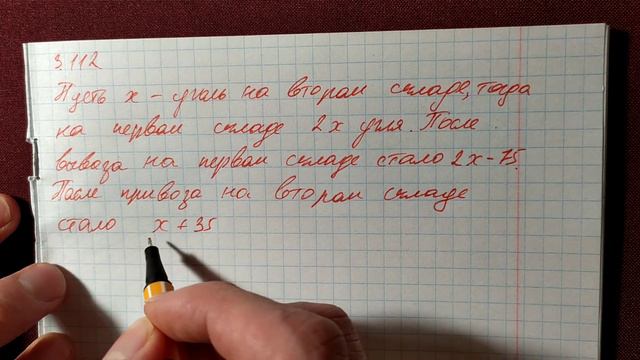 3.112
Пусть x - уголь на втором складе, тогда
на первом складе 2x угля. После
вывоза на первом складе стало 2x-75.
После привоза на втором складе
стало x+35